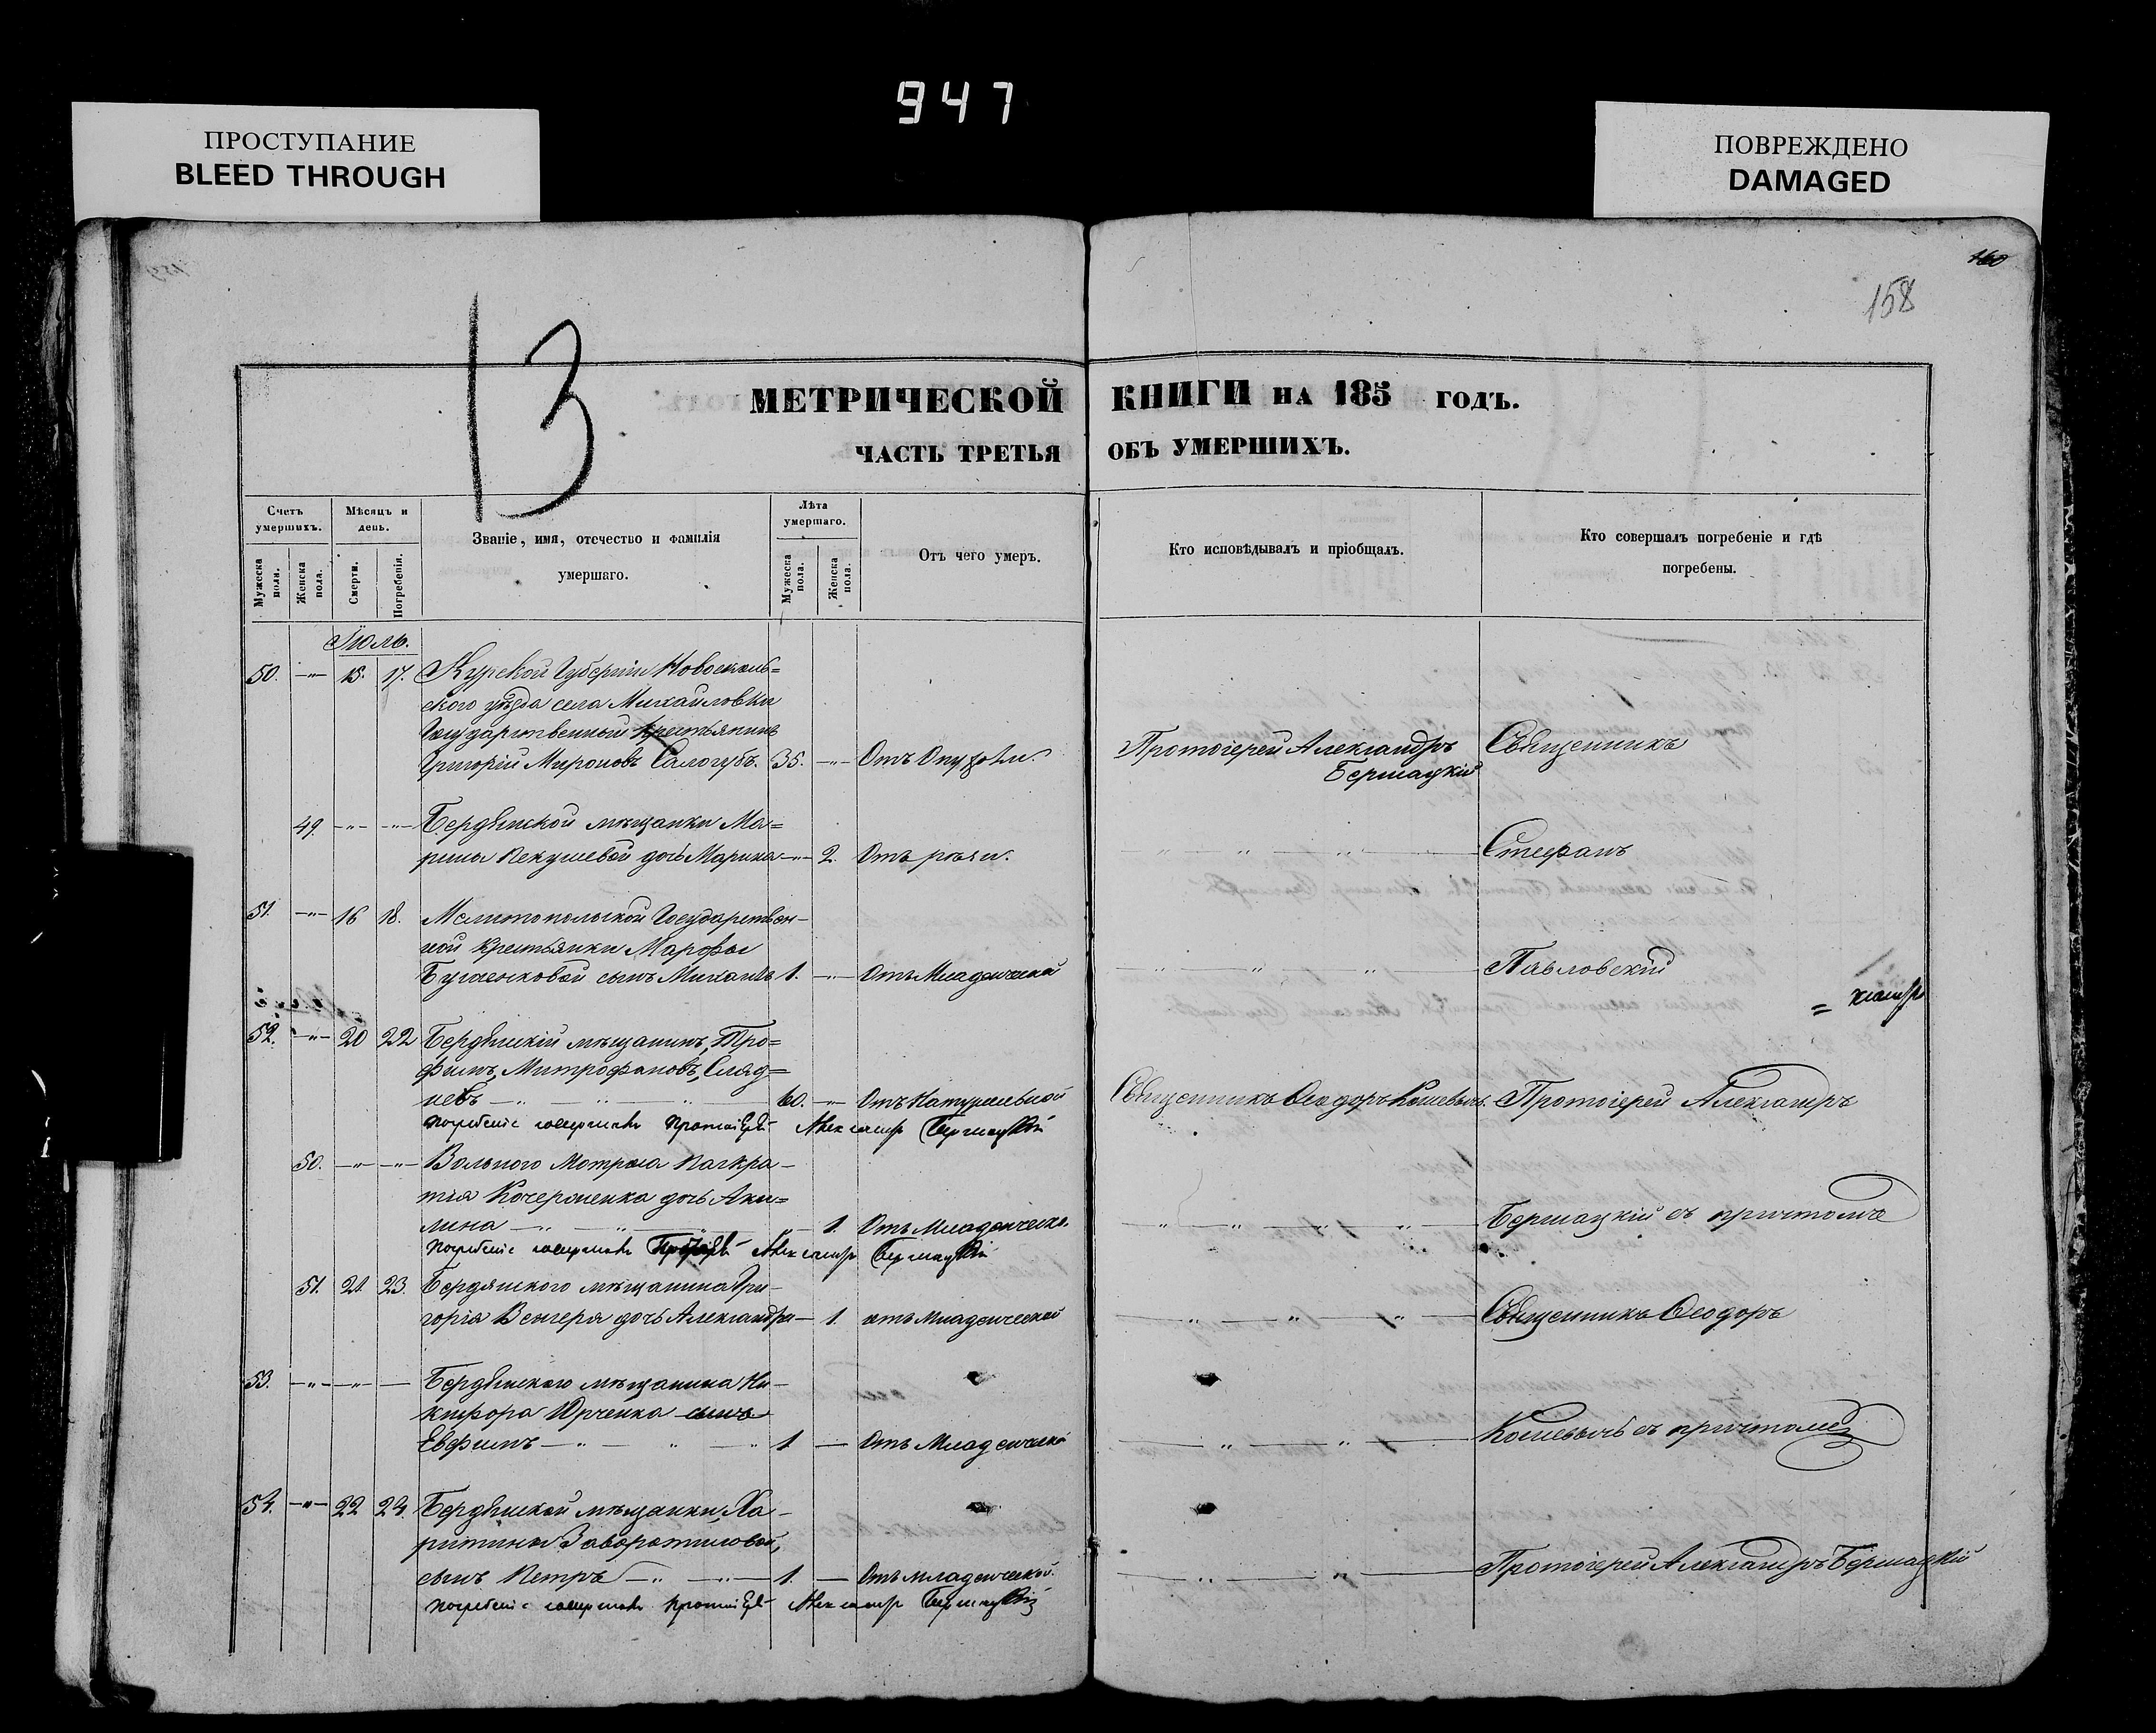 947
ПРОСТУПАНИЕ
BLEED THROUGH
ПОВРЕЖДЕНО
DAMAGED
160
158
13
МЕТРИЧЕСКОЙ КНИГИ НА 185 ГОДЪ.
ЧАСТЬ ТРЕТЬЯ ОБЪ УМЕРШИХЪ.
Счетъ умершихъ.
Мужеска поли.
Женска пола.
Мѣсяцъ и день.
Смерти.
Погребенія.
Званіе, имя, отечество и фамилія умершаго.
Лѣта умершаго.
Мужеска пола.
Женска пола.
Отъ чего умеръ.
Кто исповѣдывалъ и пріобщалъ.
Кто совершалъ погребеніе и гдѣ погребены.
Іюль.
50. —"— 15. 17. Курской Губерніи Новосколь=
скаго уѣзда села Михайловки
Государственный Крестьянинъ
Григорій Мироновъ Салогубъ. 35. —"— Отъ Опухоли. Протоіерей Александръ Бершацкій Священникъ
49. —"— —"— Бердянской мѣщанки Ма=
рины дочь Марина —"— 2. Отъ рѣзи. — " — " — " — Стефанъ
51. —"— 16 18. Мелитопольской Государствен-
ной крестьянки Марфы
сынъ Михаилъ 1. —"— Отъ Младенческой — " — " — " — Павловскій
52. —"— 20 22 Бердянскій мѣщанинъ, Тро=
фимъ, Митрофановъ, Сляд=
невъ 60. —"— Отъ Натуральной Священникъ Ѳеодоръ Кошевичъ. Протоіерей Александръ
погребеніе совершалъ Протоіерей Александръ Бершацкій
50. —"— —"— Вольного Матроса Панкра-
тія дочь Аку=
лина — " — " — 1. Отъ Младенческо. " — " — " — " — Бершацкій съ причтомъ
погребеніе совершалъ Протоіерей Александръ Бершацкій
51. 21. 23. Бердянского мѣщанина Гри-
горія Венгеря дочь Александра — 1. отъ Младенческой — " — " — " — Священникъ Ѳеодоръ
53. —"— —"— — Бердянского мѣщанина Ни-
кифора Юрченка сынъ
Евфимъ — " — " — " 1 — Отъ Младенческой — " — " — Кошевичъ съ причтомъ
54. —"— 22 24. Бердянской мѣщанки, Ха-
ритины
сынъ Петръ — " — " — 1. — Отъ младенческой. — " — " — Протоіерей Александръ Бершацкій
погребеніе совершалъ Протоіерей Александръ Бершацкій